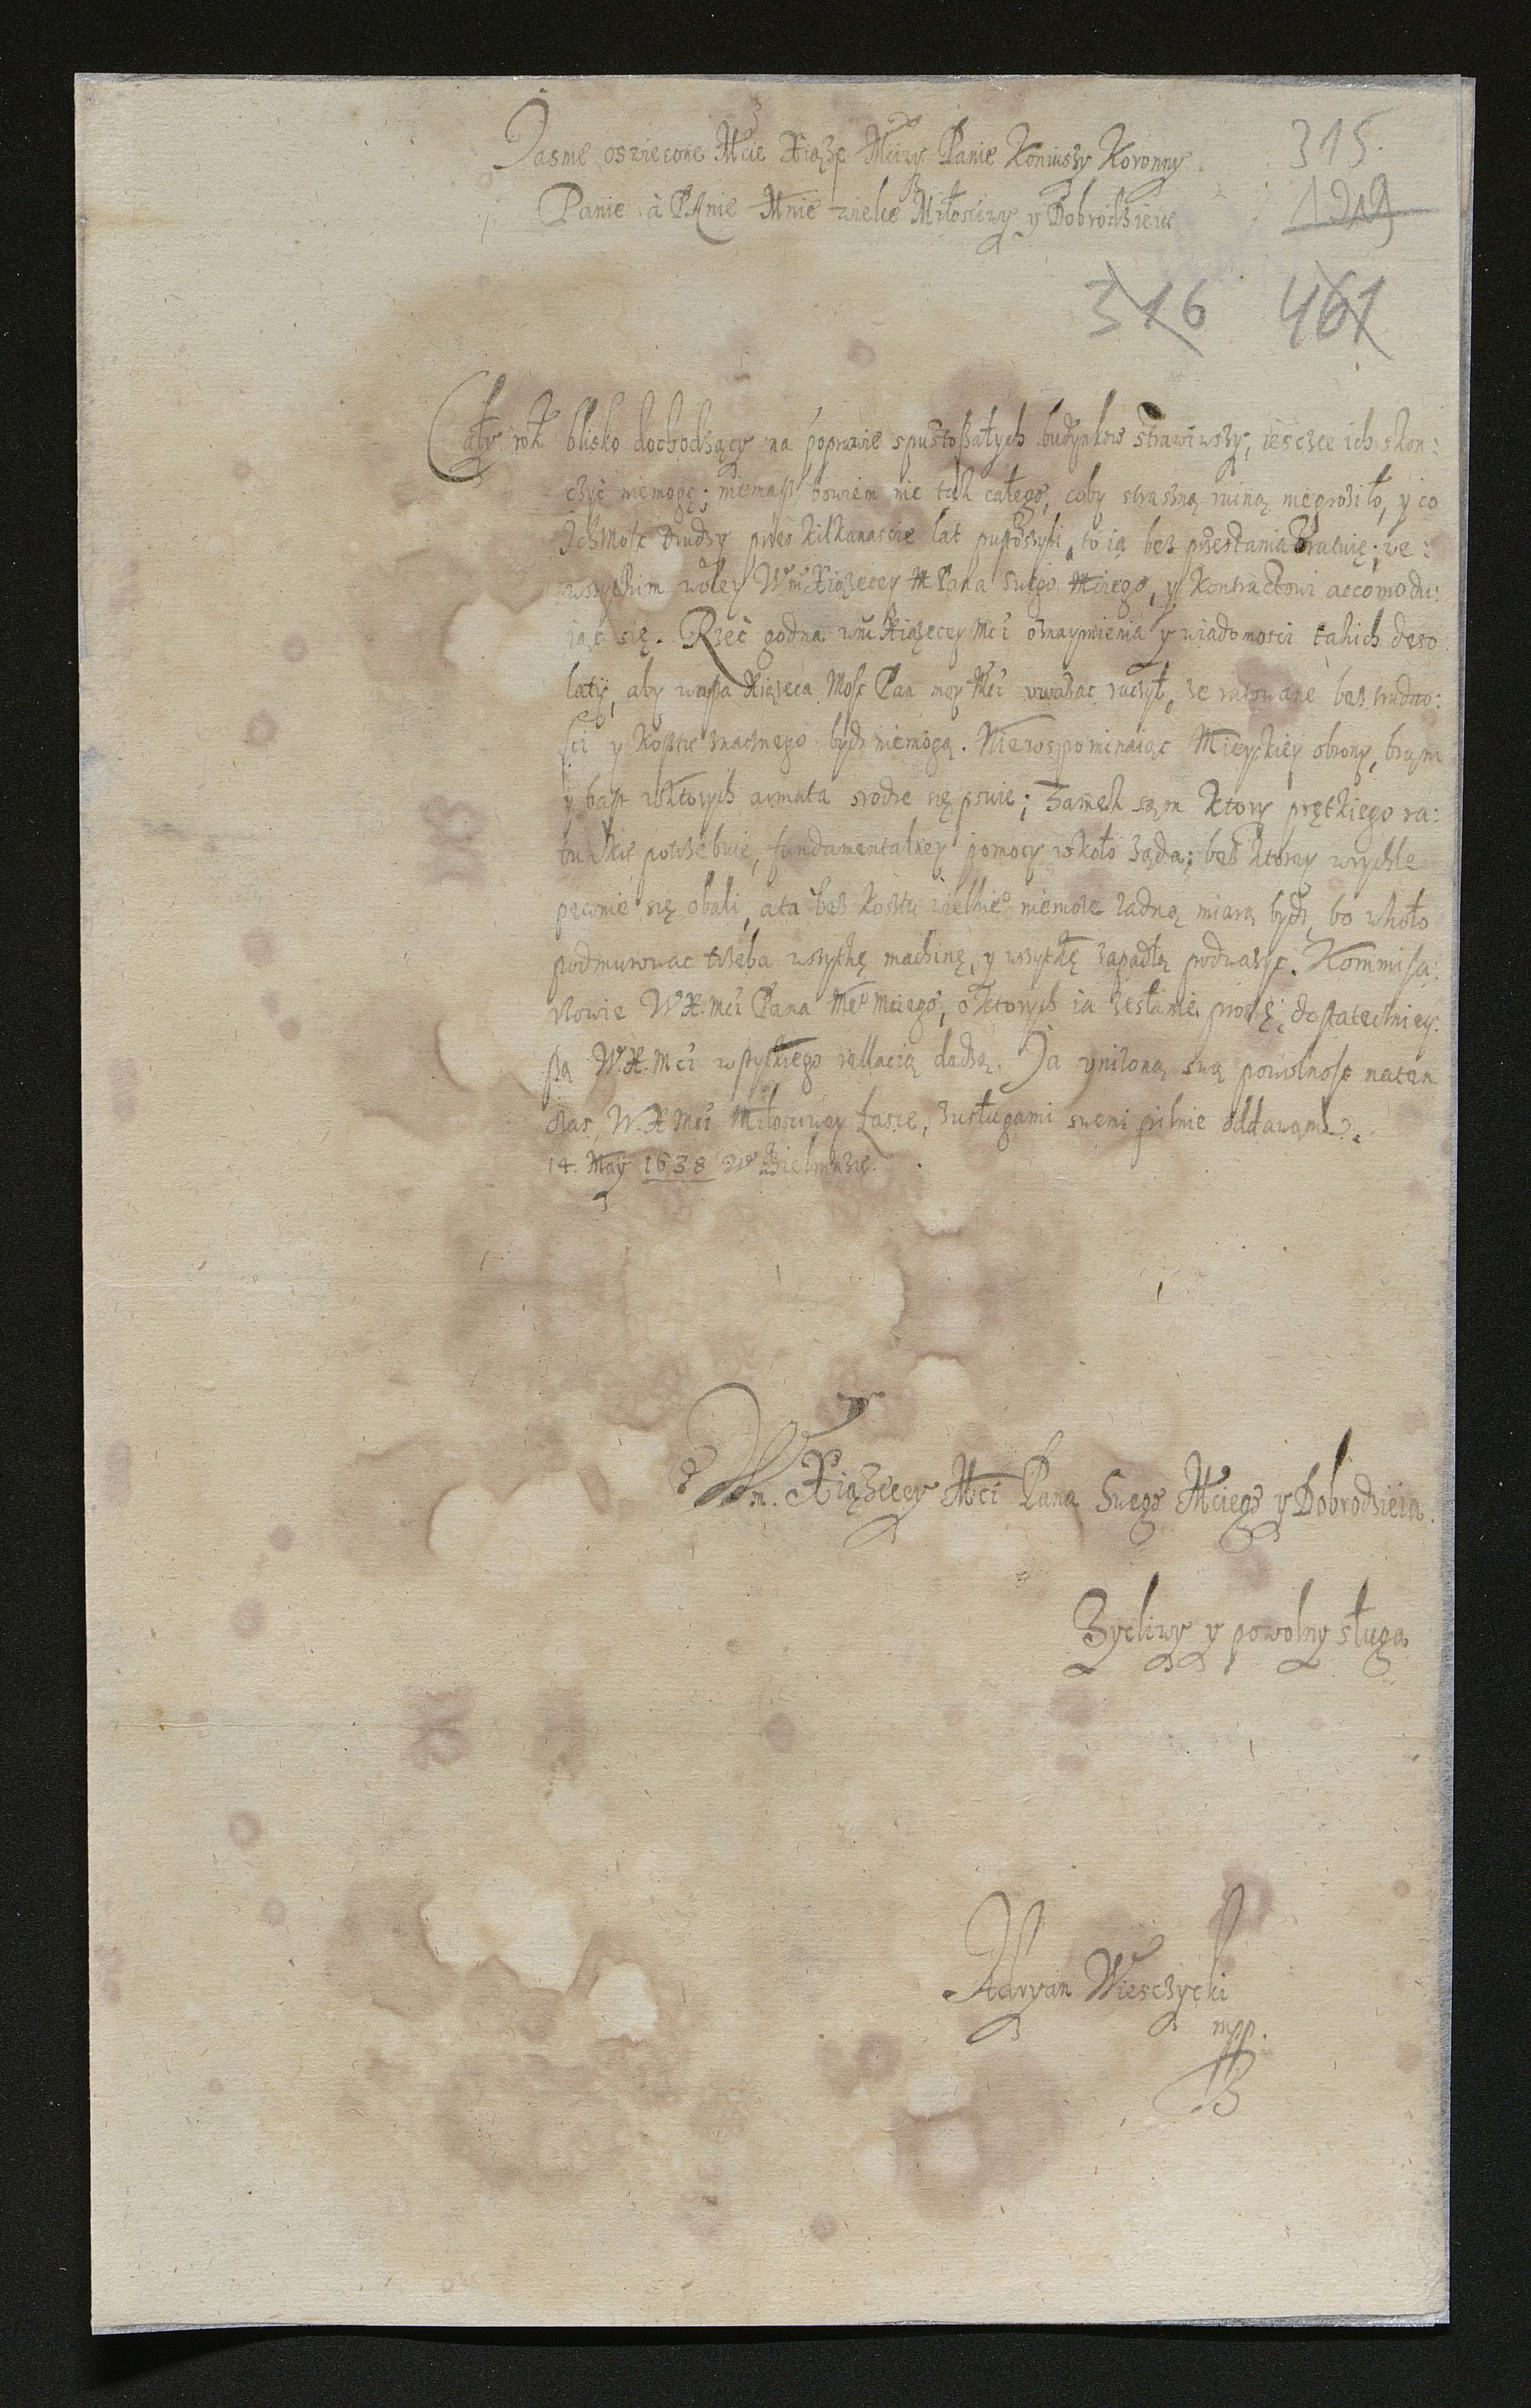 Jasnie oswiecone Mcie Xiąże Mciwy Panie Koniuszy Koronny
315.
Panie à PAnie Mnie wielce Miłosciwy y Dobrodzieiu
1219
316 461
Cały rok blisko dochodzący na poprawie spustoszałych budynkow strawiwszy, iescze ich skon:
czyć niemogę; niemasz bowiem nic tak całego, coby straszną ruiną niegroziło, y co
Ich Mosc drudzy przes kilkanascie lat pustoszyli, to ia bez przestania ratuię; we:
wszytkim woley Wm Xiązecey M Pana swego Mciego, y Kontractowi accomodu:
iąc się. Rzeć godna wm Xiązecey Mci oznaymienia y wiadomosci takich deso
latij, aby wasza Xiązeca Mosc Pan moy Mci uwazac raczył, ze ratowane bez trudno:
sci y kosztu znacznego bydz niemogą. Niewspominaiąc Mieyskiey obrony, bram
y baszt w ktorych armata srodze się psuie; Zamek sam ktory prętkiego ra:
tunku potrzebuie, fundamentalney pomocy wkoło ząda; bez ktorey wrychle
pewnie się obali, a ta bez kosztu wielkieº niemoze zadną miarą bydz, bo wkoło
podmurowac trzeba wszytkę machinę, y wszytkę zapadłą podwazyć. Kommisa:
rzowie W X. Mci Pana Meº Mciego, o ktorych ia zesłanie proszę; dostateczniey:
szą W. X. Mci wszytkiego rellacią dadzą. Ja unizoną swą powolnosc naten
czas, W. X Mci Miłosciwey łasce, z usługami swemi pilnie oddawam.
14. Maij 1638 w Bielmazie.
Wm. Xiążecey Mci Pana Swego Mciego y Dobrodzieia.
Zycliwy y powolny sługa
Adryan Wiesczycki
mpp.